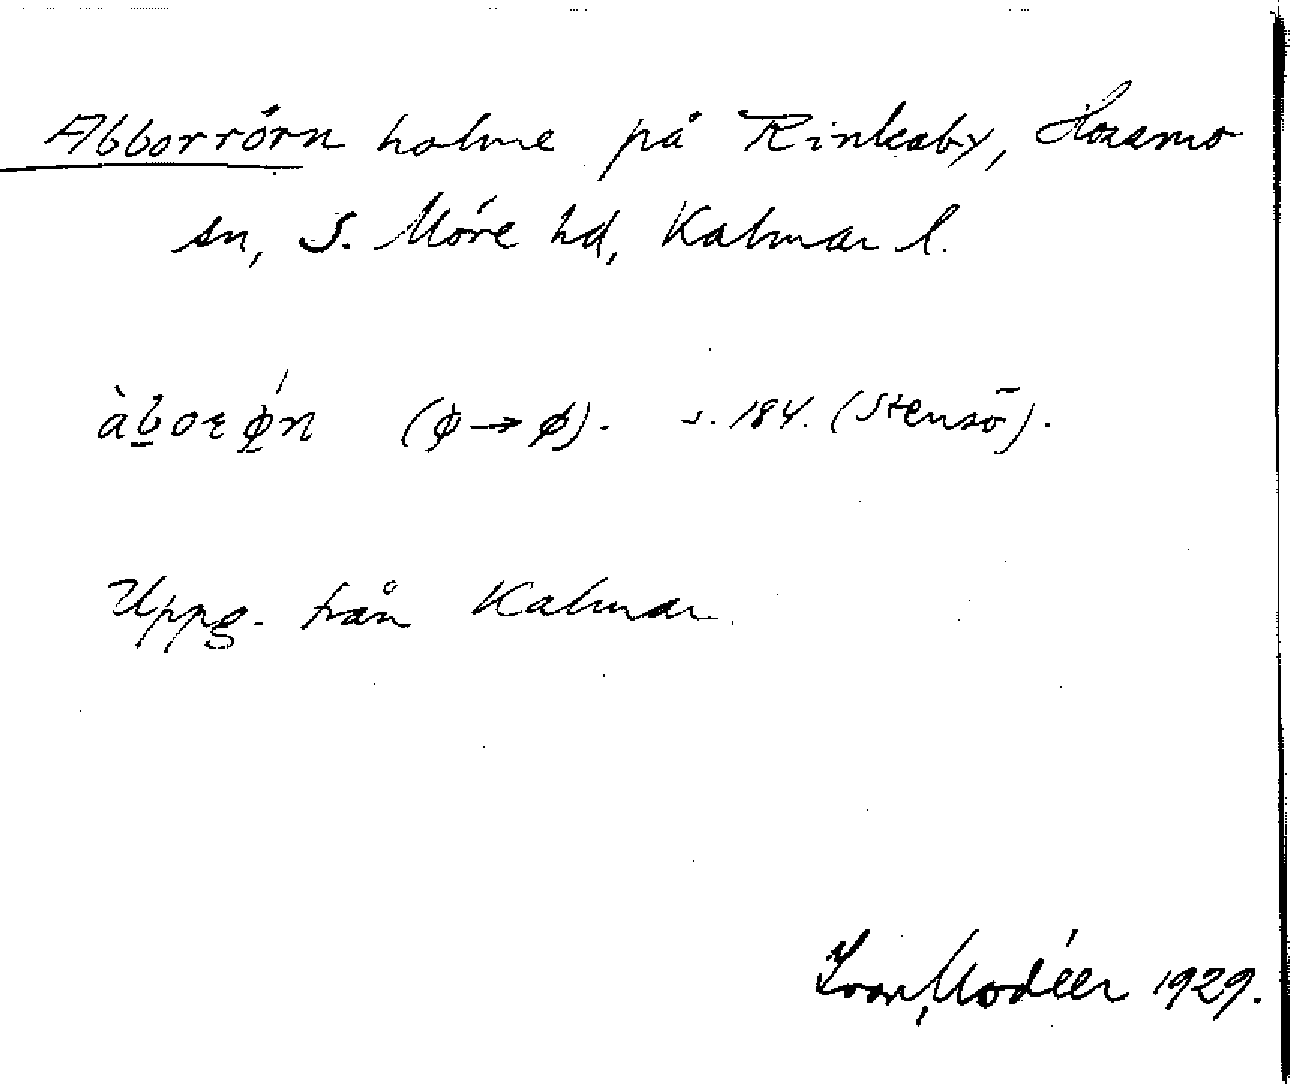 Abborrörn holme på Rinkaby, Hossmo
sn, S. Möre hd, Kalmar l.
àborǿn (ø → ø). s. 184. (Stensö).
Uppg. från Kalmar.
Ivar Modéer 1929.